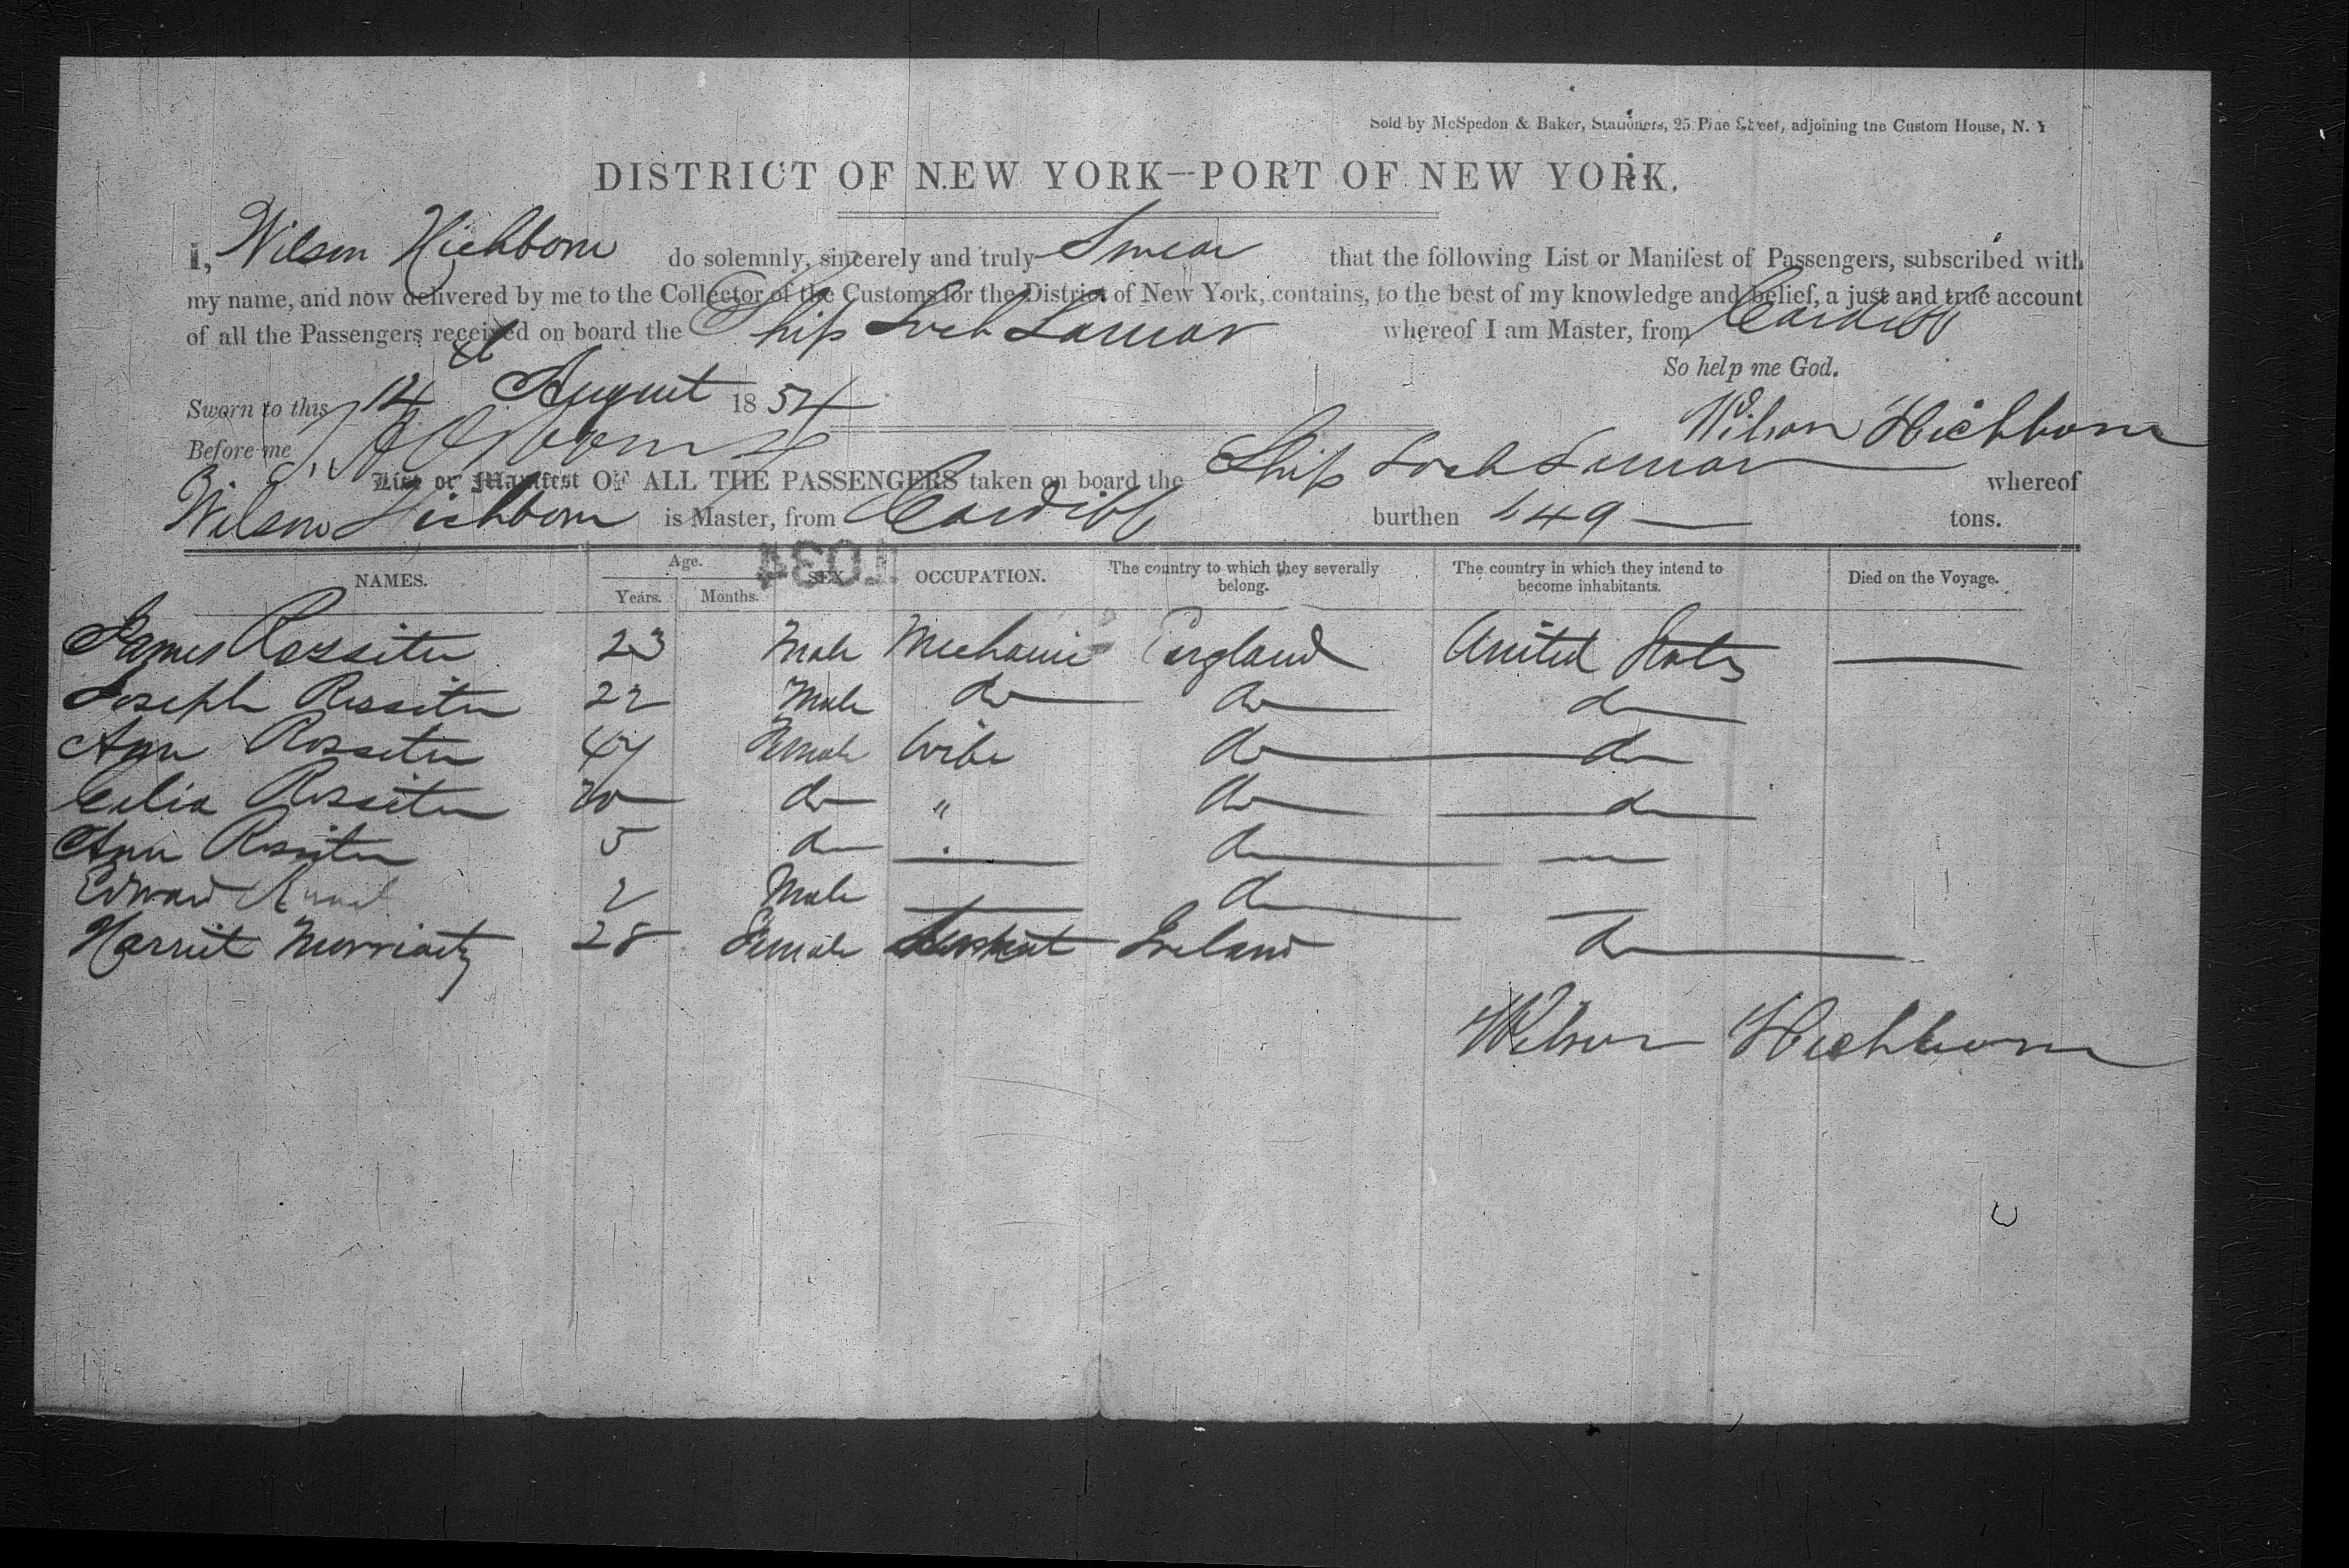 Sold by McSpedon & Baker, Stationers, 25 Pine Street, adjoining the Custom House, N. Y
DISTRICT OF NEW YORK—PORT OF NEW YORK.
I, Wilson Hichborn do solemnly, sincerely and truly Swear that the following List or Manifest of Passengers, subscribed with
my name, and now delivered by me to the Collector of the Customs for the District of New York, contains, to the best of my knowledge and belief, a just and true account
of all the Passengers received on board the Ship Loch Lamar whereof I am Master, from Cardiff
So help me God.
Sworn to this 14 August 1854
Wilson Hichborn
Before me
List or Manifest OF ALL THE PASSENGERS taken on board the Ship Loch Lamar whereof
Wilson Hichborn is Master, from Cardiff burthen 649 tons.
1034
NAMES. Age. Years. Months. SEX. OCCUPATION. The country to which they severally belong. The country in which they intend to become inhabitants. Died on the Voyage.
James Rossiter 23 Male Mechanic England United States —
Joseph Rossiter 22 Male do do do
Ann Rossiter 47 Female Wife do do
Celia Rossiter 20 do " do do
Ann Rossiter 5 do — do —
Edward 2 Male — do —
Harriet Morriarty 28 Female Ireland do
Wilson Hichborn